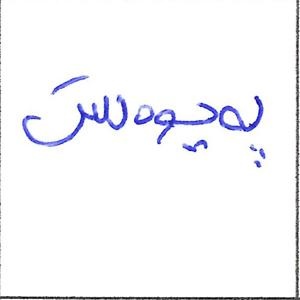 پەیوەست